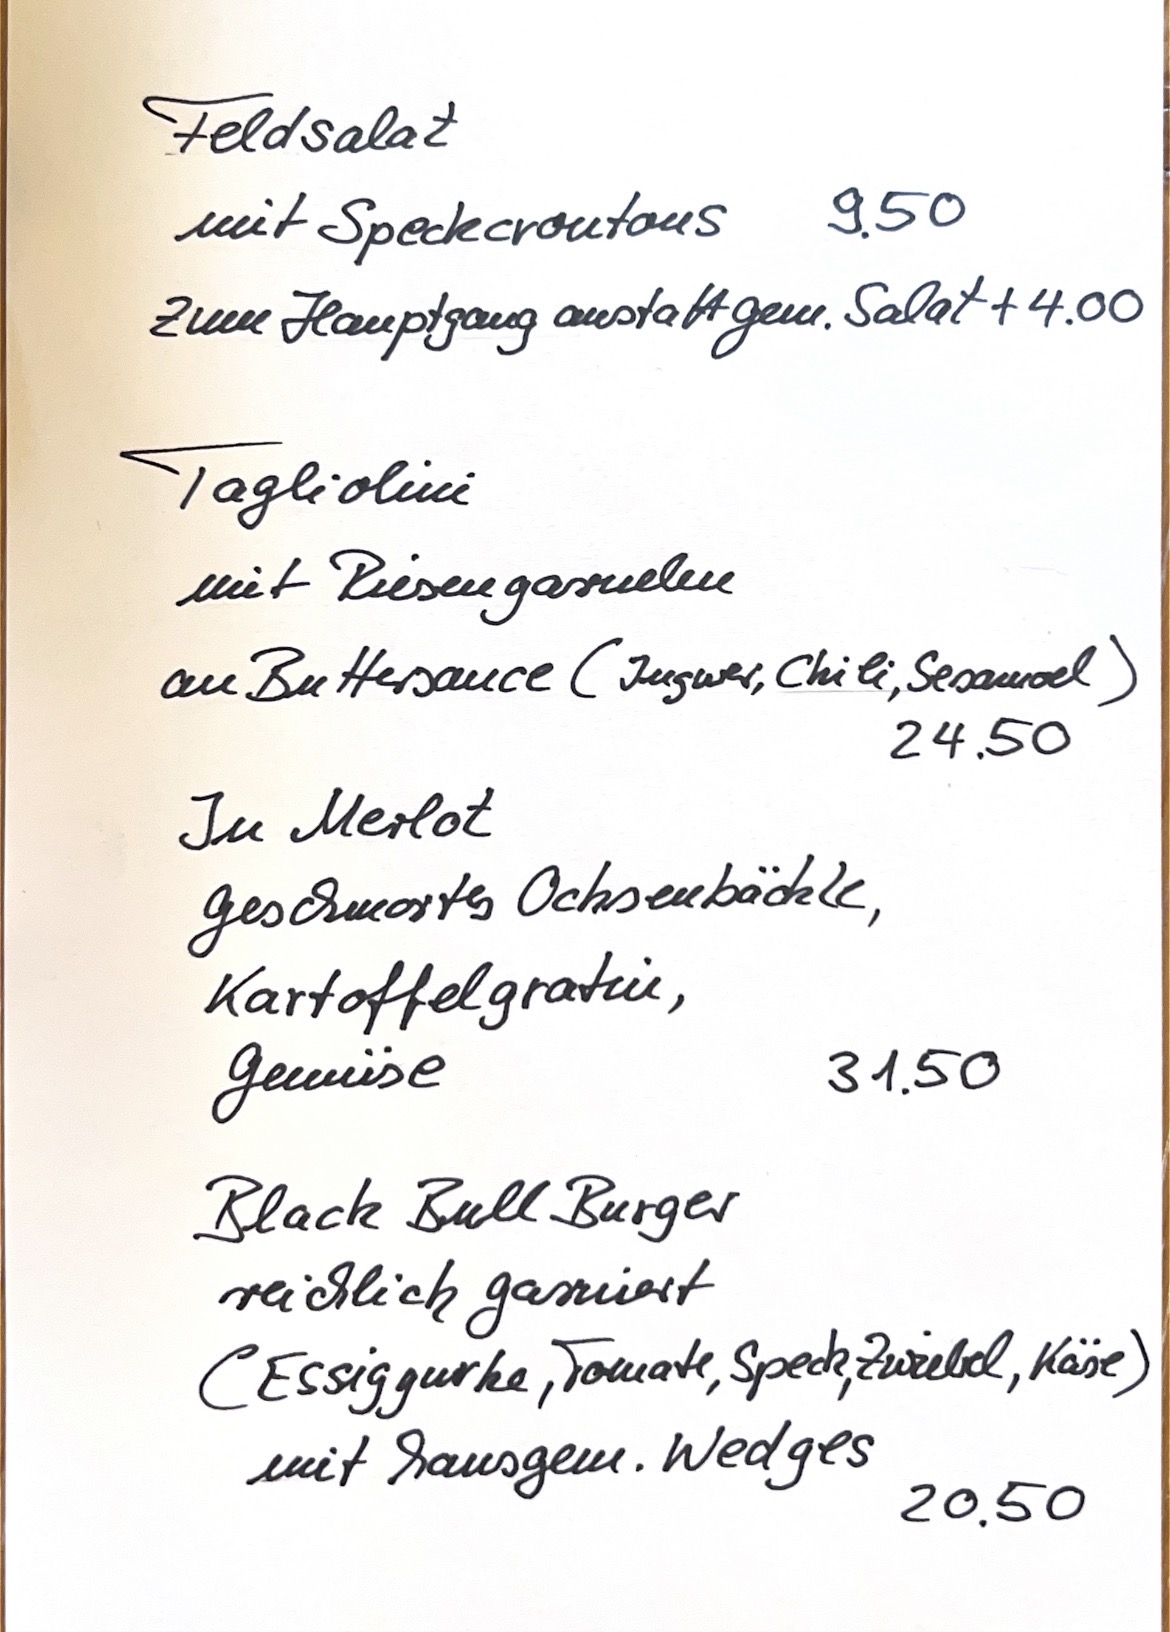 Feldsalat
mit Speckcroutons 9.50
zum Hauptgang anstatt gem. Salat + 4.00
Tagliolini
mit Riesengarnelen
an Buttersauce (Ingwer, Chili, Sesamoel)
24.50
In Merlot
geschmortes Ochsenbäckle,
Kartoffelgratin,
Gemüse 31.50
Black Bull Burger
reichlich garniert
(Essiggurke, Tomate, Speck, Zwiebel, Käse)
mit hausgem. Wedges
20.50